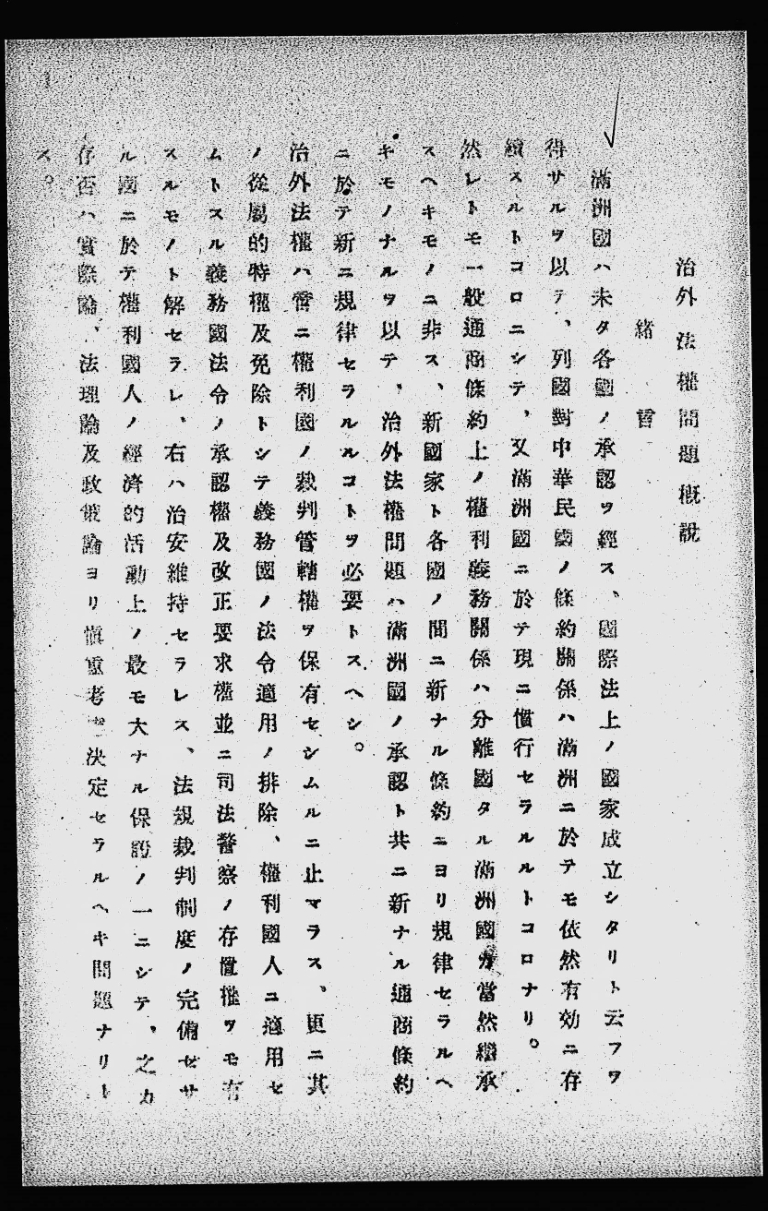 治外法權問題槪說
緒言
滿洲國ハ未タ各國ノ承認ヲ經ス、國際法上ノ國家成立シタリト云フヲ
得サルヲ以テ、列國對中華民國ノ條約關係ハ滿洲ニ於テモ依然有効ニ存
續スルトコロニシテ、又滿洲國ニ於テ現ニ慣行セラルルトコロナリ。
然レトモ一般通商條約上ノ權利義務關係ハ分離國タル滿洲國カ當然繼承
スヘキモノニ非ス、新國家ト各國ノ間ニ新ナル條約ニヨリ規律セラルヘ
キモノナルヲ以テ、治外法權問題ハ滿洲國ノ承認ト共ニ新ナル通商條約
ニ於テ新ニ規律セラルルコトヲ必要トスヘシ。
治外法權ハ啻ニ權利國ノ裁判管轄權ヲ保有セシムルニ止マラス、更ニ其
ノ從屬的特權及免除トシテ義務國ノ法令適用ノ排除、權利國人ニ適用セ
ムトスル義務國法令ノ承認權及改正要求權並ニ司法警察ノ存置權ヲモ有
スルモノト解セラレ、右ハ治安維持セラレス、法規裁判制度ノ完備セサ
ル國ニ於テ權利國人ノ經濟的活動上ノ最モ大ナル保證ノ一ニシテ、之カ
存否ハ實際論、法理論及政策論ヨリ愼重考慮決定セラルヘキ問題ナリト
ス。